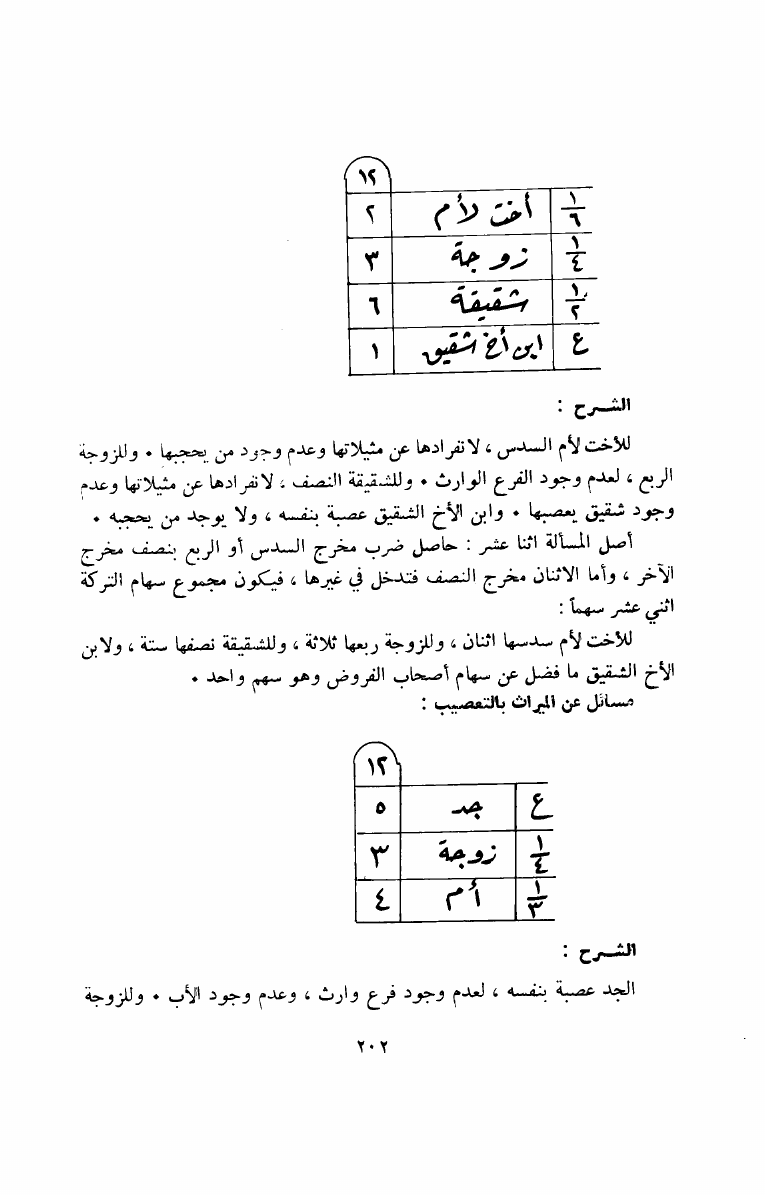 ١٢
١/٦ أخت لأم ٢
١/٤ زوجة ٣
١/٢ شقيقة ٦
ع ابن أخ شقيق ١
الشرح :
للأخت لأم السدس ، لانفرادها عن مثيلاتها وعدم وجود من يحجبها • وللزوجة
الربع ، لعدم وجود الفرع الوارث • وللشقيقة النصف ، لانفرادها عن مثيلاتها وعدم
وجود شقيق يعصبها • وابن الأخ الشقيق عصبة بنفسه ، ولا يوجد من يحجبه •
أصل المسألة اثنا عشر : حاصل ضرب مخرج السدس أو الربع بنصف مخرج
الآخر ، وأما الاثنان مخرج النصف فتدخل في غيرها ، فيكون مجموع سهام التركة
اثني عشر سهماً :
للأخت لأم سدسها اثنان ، وللزوجة ربعها ثلاثة ، وللشقيقة نصفها ستة ، ولابن
الأخ الشقيق ما فضل عن سهام أصحاب الفروض وهو سهم واحد •
مسائل عن الميراث بالتعصيب :
١٢
ع جد ٥
١/٤ زوجة ٣
١/٣ أم ٤
الشرح :
الجد عصبة بنفسه ، لعدم وجود فرع وارث ، وعدم وجود الأب • وللزوجة
٢٠٢